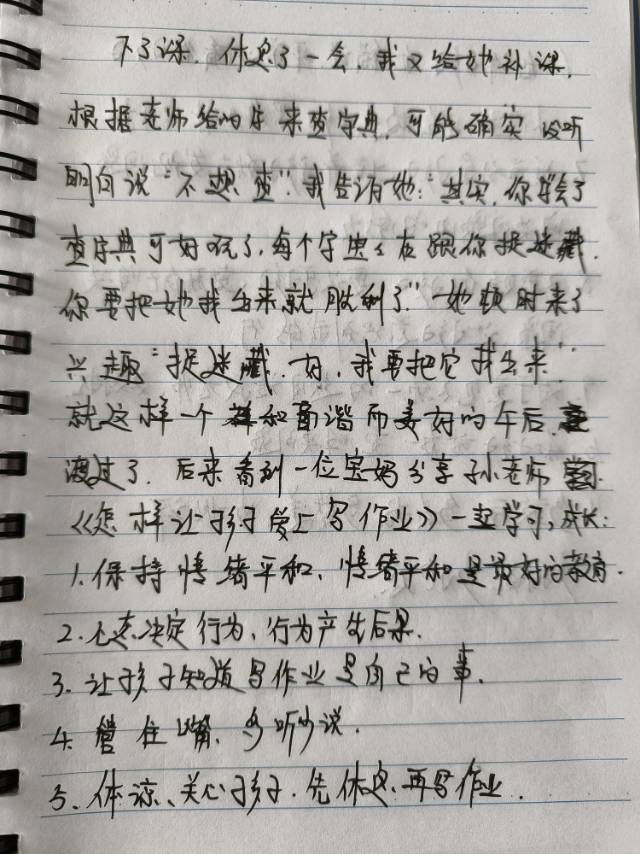 下了课，休息了一会，我又给她补课，
根据老师给的字来查字典，可能确实没听
明白说"不想查"，我告诉她："其实，你学会了
查字典可好玩了，每个字典在跟你捉迷藏，
你要把她找出来就胜利了"她顿时来了
兴趣"捉迷藏，好，我要把它找出来"
就这样一个和谐而美好的午后
渡过了，后来看到一位宝妈分享孙老师
《怎样让孩子爱上写作业》一起学习，成长：
1.保持情绪平和，情绪平和是最好的教育.
2.心态决定行为，行为产生后果.
3.让孩子知道写作业是自己的事.
4.管住嘴，多听少说.
5.体谅、关心孩子，先休息，再写作业.